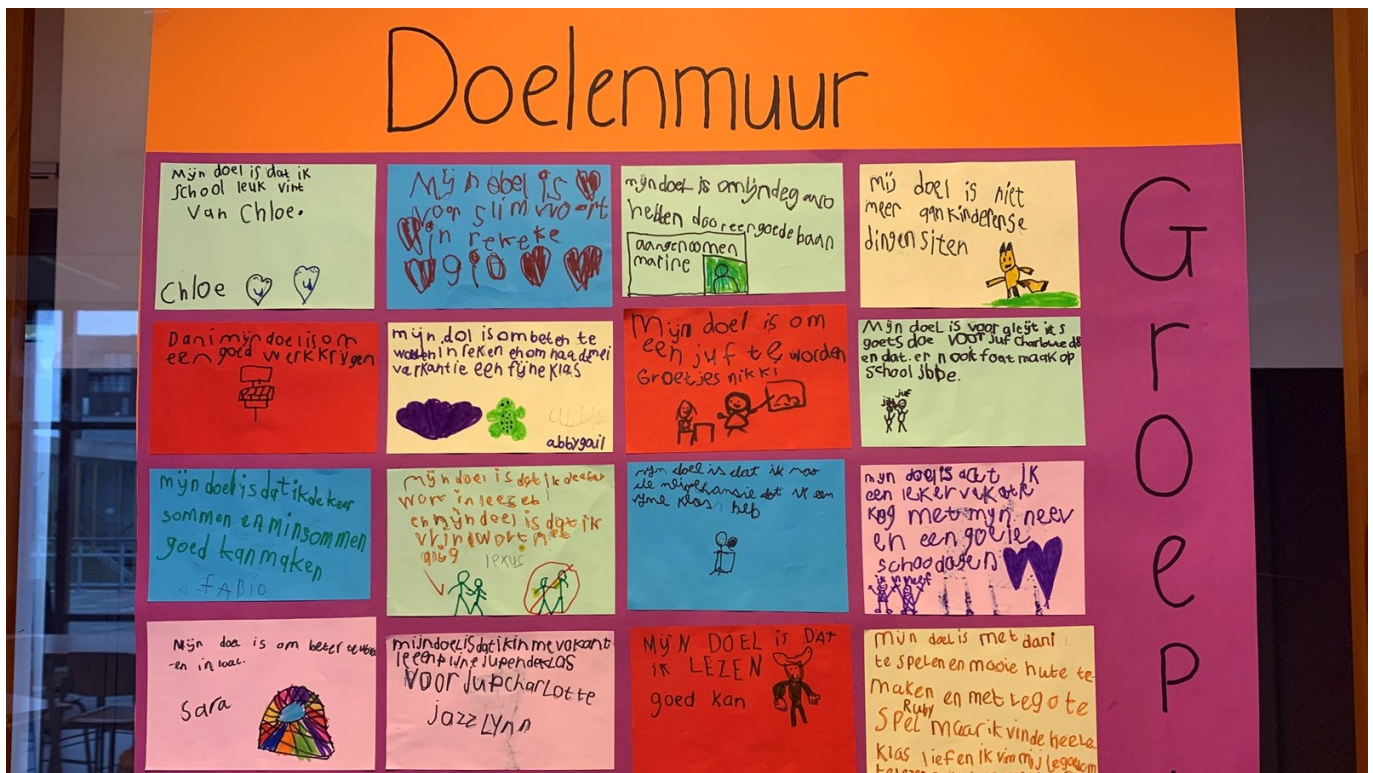 Doelenmuur
Mijn doel is dat ik
school leuk vint
van Chloe.
Chloe
Mijn is
voor slim woort
in rekeke
gio
mijn doel is omijndeg
hebben door een goede baan
aangenoomen
marine
mij doel is niet
meer aankinderense
dingen siten
Dani mijn doel is om
een goed werk krijgen
mijn dol is om beten te
worden in reken en om na ad mei
varkantie een fijne klas
abbygail
Mijn doel is om
een juf te worden
Groetjes nikki
Mijn doel is voor
goets doe voor juf Charlotte
en dat er nook foat maak op
school
juf
mijn doel is dat ik de keer
sommen en minsommen
goed kan maken
fABio
mijn doel is dat ik
wort in
en mijn doel is dat ik
vrint wort
lexus
mijn doel is dat ik
dat ik een
klas heb
mijn doel is dat ik
een leker vakatie
krijg met mijn neev
en een goeie
schoodagen
ik
Mijn doel is om beter te
en in taal.
Sara
mijn doel is dat ik in me vakant
klas
voor jupcharlotte
jazzlynn
MIJN DOEL is DAt
ik LEZEN
goed kan
mijn doel is met dani
te spelen en mooie hute te
maken en met lego te
Ruby
spel maar ik vinde heele
klas lief en ik vin mij
GroeP